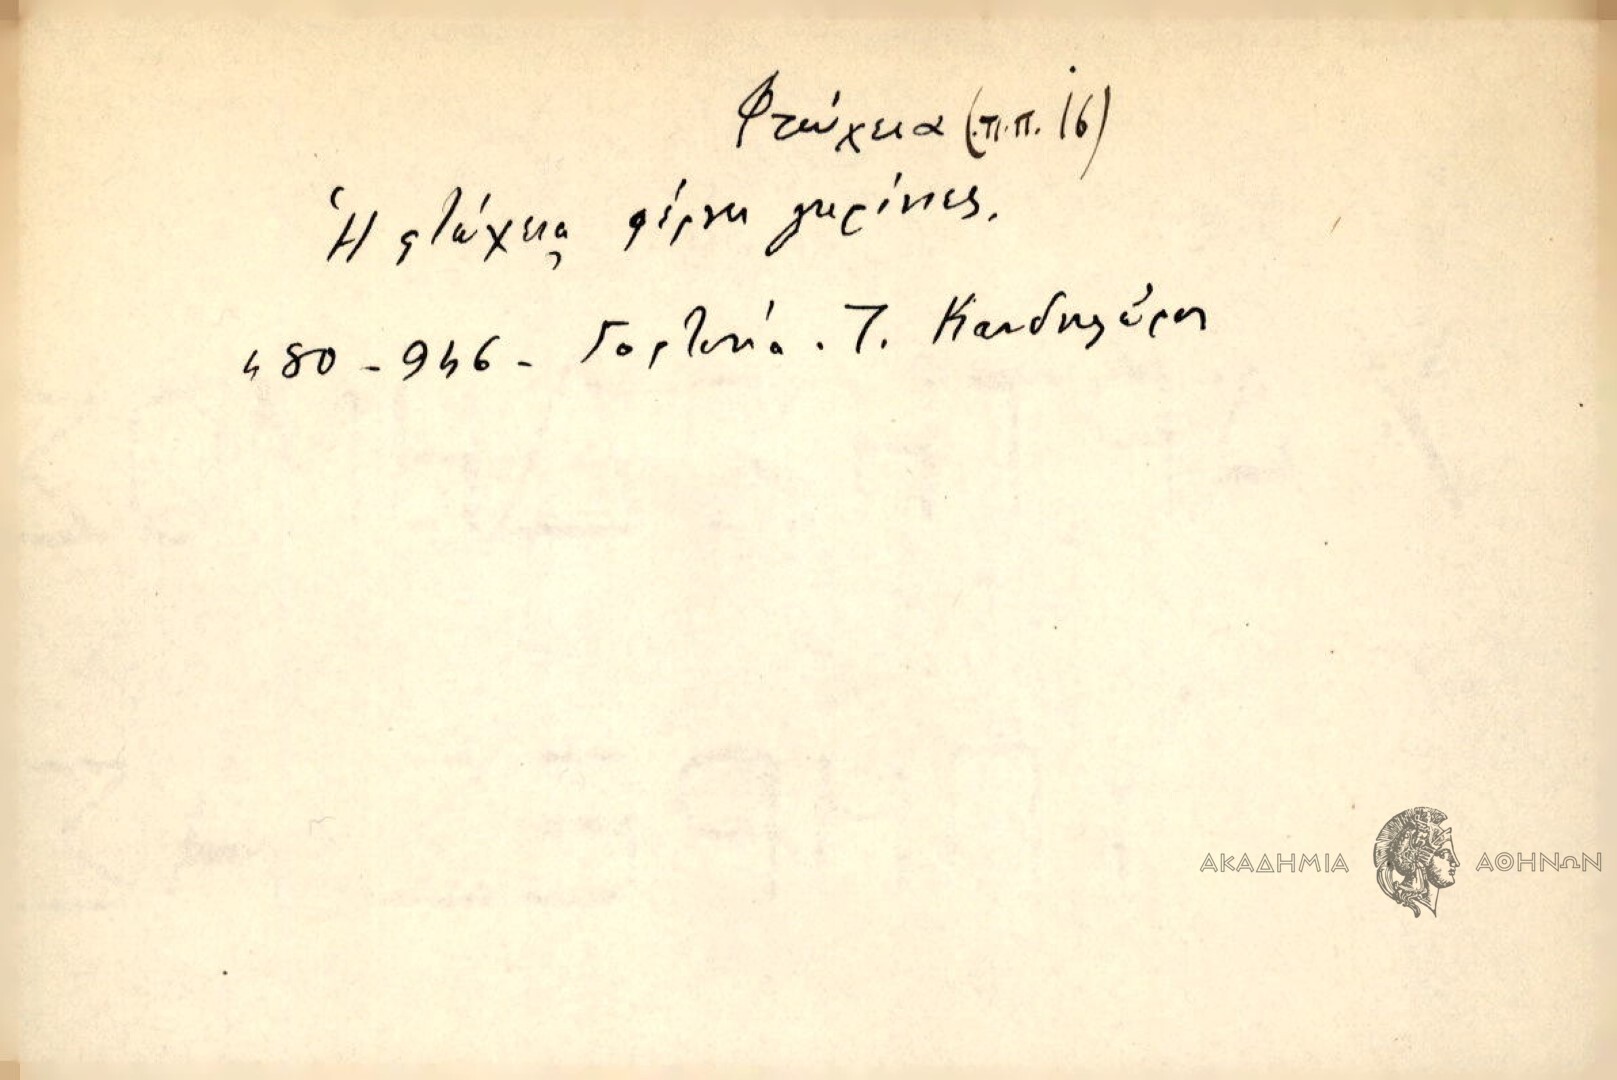 Φτώχεια (π.π. 16)
Ἡ φτώχεια φέρνει γκρίνιες.
480 - 946 - Γορτυνία. Τ. Κανδηλώρου
ΑΚΑΔΗΜΙΑ ΑΘΗΝΩΝ